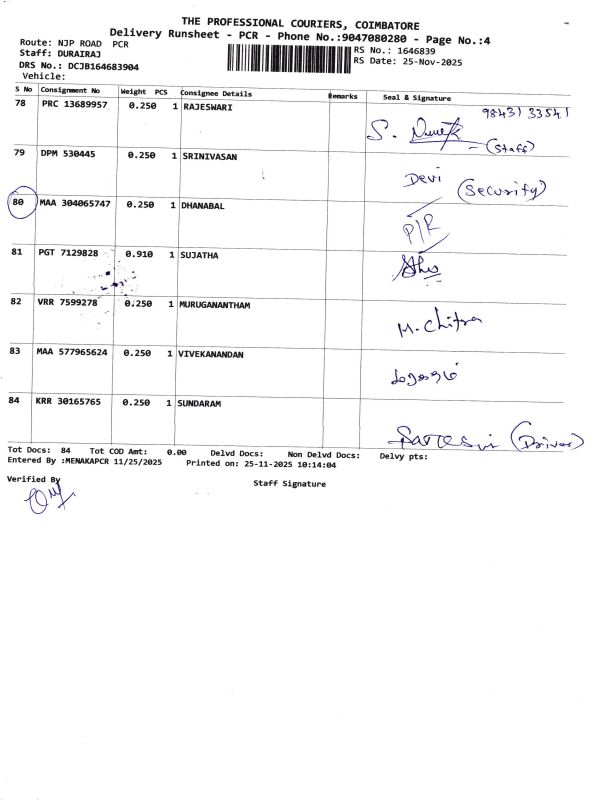 THE PROFESSIONAL COURIERS, COIMBATORE
Delivery Runsheet - PCR - Phone No.:9047080280 - Page No.:4
Route: NJP ROAD PCR
Staff: DURAIRAJ
DRS No.: DCJB164683904
Vehicle:
RS No.: 1646839
RS Date: 25-Nov-2025
S No Consignment No Weight PCS Consignee Details Remarks Seal & Signature
78 PRC 13689957 0.250 1 RAJESWARI 98431 33541
S. (Staff)
79 DPM 530445 0.250 1 SRINIVASAN
Devi (Security)
80 MAA 304065747 0.250 1 DHANABAL
P/R
81 PGT 7129828 0.910 1 SUJATHA
82 VRR 7599278 0.250 1 MURUGANANTHAM
M. Chitra
83 MAA 577965624 0.250 1 VIVEKANANDAN
84 KRR 30165765 0.250 1 SUNDARAM
(Driver)
Tot Docs: 84 Tot COD Amt: 0.00 Delvd Docs: Non Delvd Docs: Delvy pts:
Entered By :MENAKAPCR 11/25/2025 Printed on: 25-11-2025 10:14:04
Verified By
Staff Signature